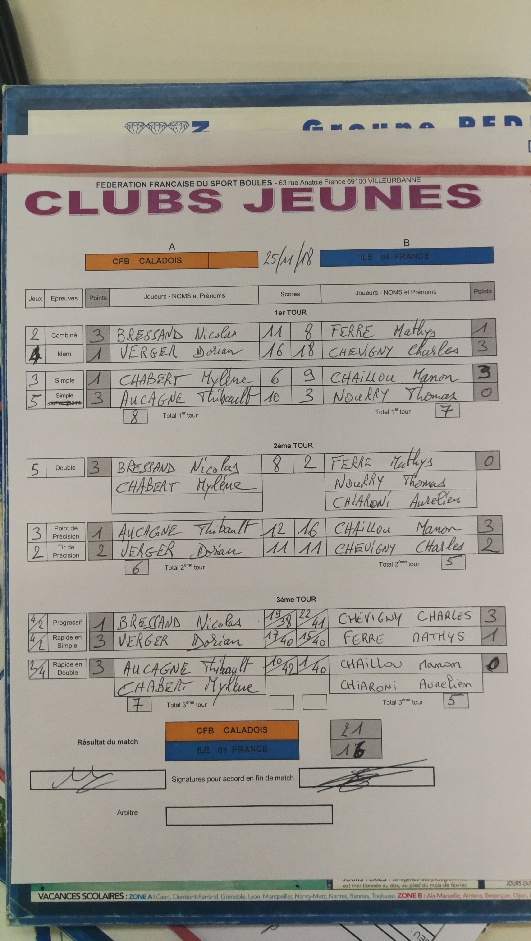 Groupe
FEDERATION FRANCAISE DU SPORT BOULES - 63 rue Anatole France 69100 VILLEURBANNE
CLUBS JEUNES
A B
CFB CALADOIS 25/11/18 ILE de FRANCE
Jeux Epreuves Points Joueurs - NOMS et Prénoms Scores Joueurs - NOMS et Prénoms Points
1er TOUR
2 Combiné 3 BRESSAND Nicolas 11 8 FERRE Mathys 1
4 Idem 1 VERGER Dorian 16 18 CHEVIGNY Charles 3
3 Simple 1 CHABERT Mylène 6 9 CHAILLOU Manon 3
5 Simple 3 AUCAGNE Thibault 10 3 NOURRY Thomas 0
8 Total 1er tour Total 1er tour 7
2ème TOUR
5 Double 3 BRESSAND Nicolas 8 2 FERRE Mathys 0
CHABERT Mylène NOURRY Thomas
CHIARONI Aurelien
3 Point de Précision 1 AUCAGNE Thibault 12 16 CHAILLOU Manon 3
2 Tir de Précision 2 VERGER Dorian 11 11 CHEVIGNY Charles 2
6 Total 2ème tour Total 2ème tour 5
3ème TOUR
4/2 Progressif 1 BRESSAND Nicolas 19/38 22/41 CHEVIGNY CHARLES 3
4/2 Rapide en Simple 3 VERGER Dorian 17/40 15/40 FERRE MATHYS 1
3/4 Rapide en Double 3 AUCAGNE Thibault /42 /40 CHAILLOU Manon 0
CHABERT Mylène CHIARONI Aurelien
7 Total 3ème tour Total 3ème tour 5
Résultat du match CFB CALADOIS 21
ILE de FRANCE 16
Signatures pour accord en fin de match
Arbitre
VACANCES SCOLAIRES : ZONE A : Caen, Clermont-Ferrand, Grenoble, Lyon, Montpellier, Nancy-Metz, Nantes, Rennes, Toulouse. ZONE B : Aix-Marseille, Amiens, Besançon, Dijon,